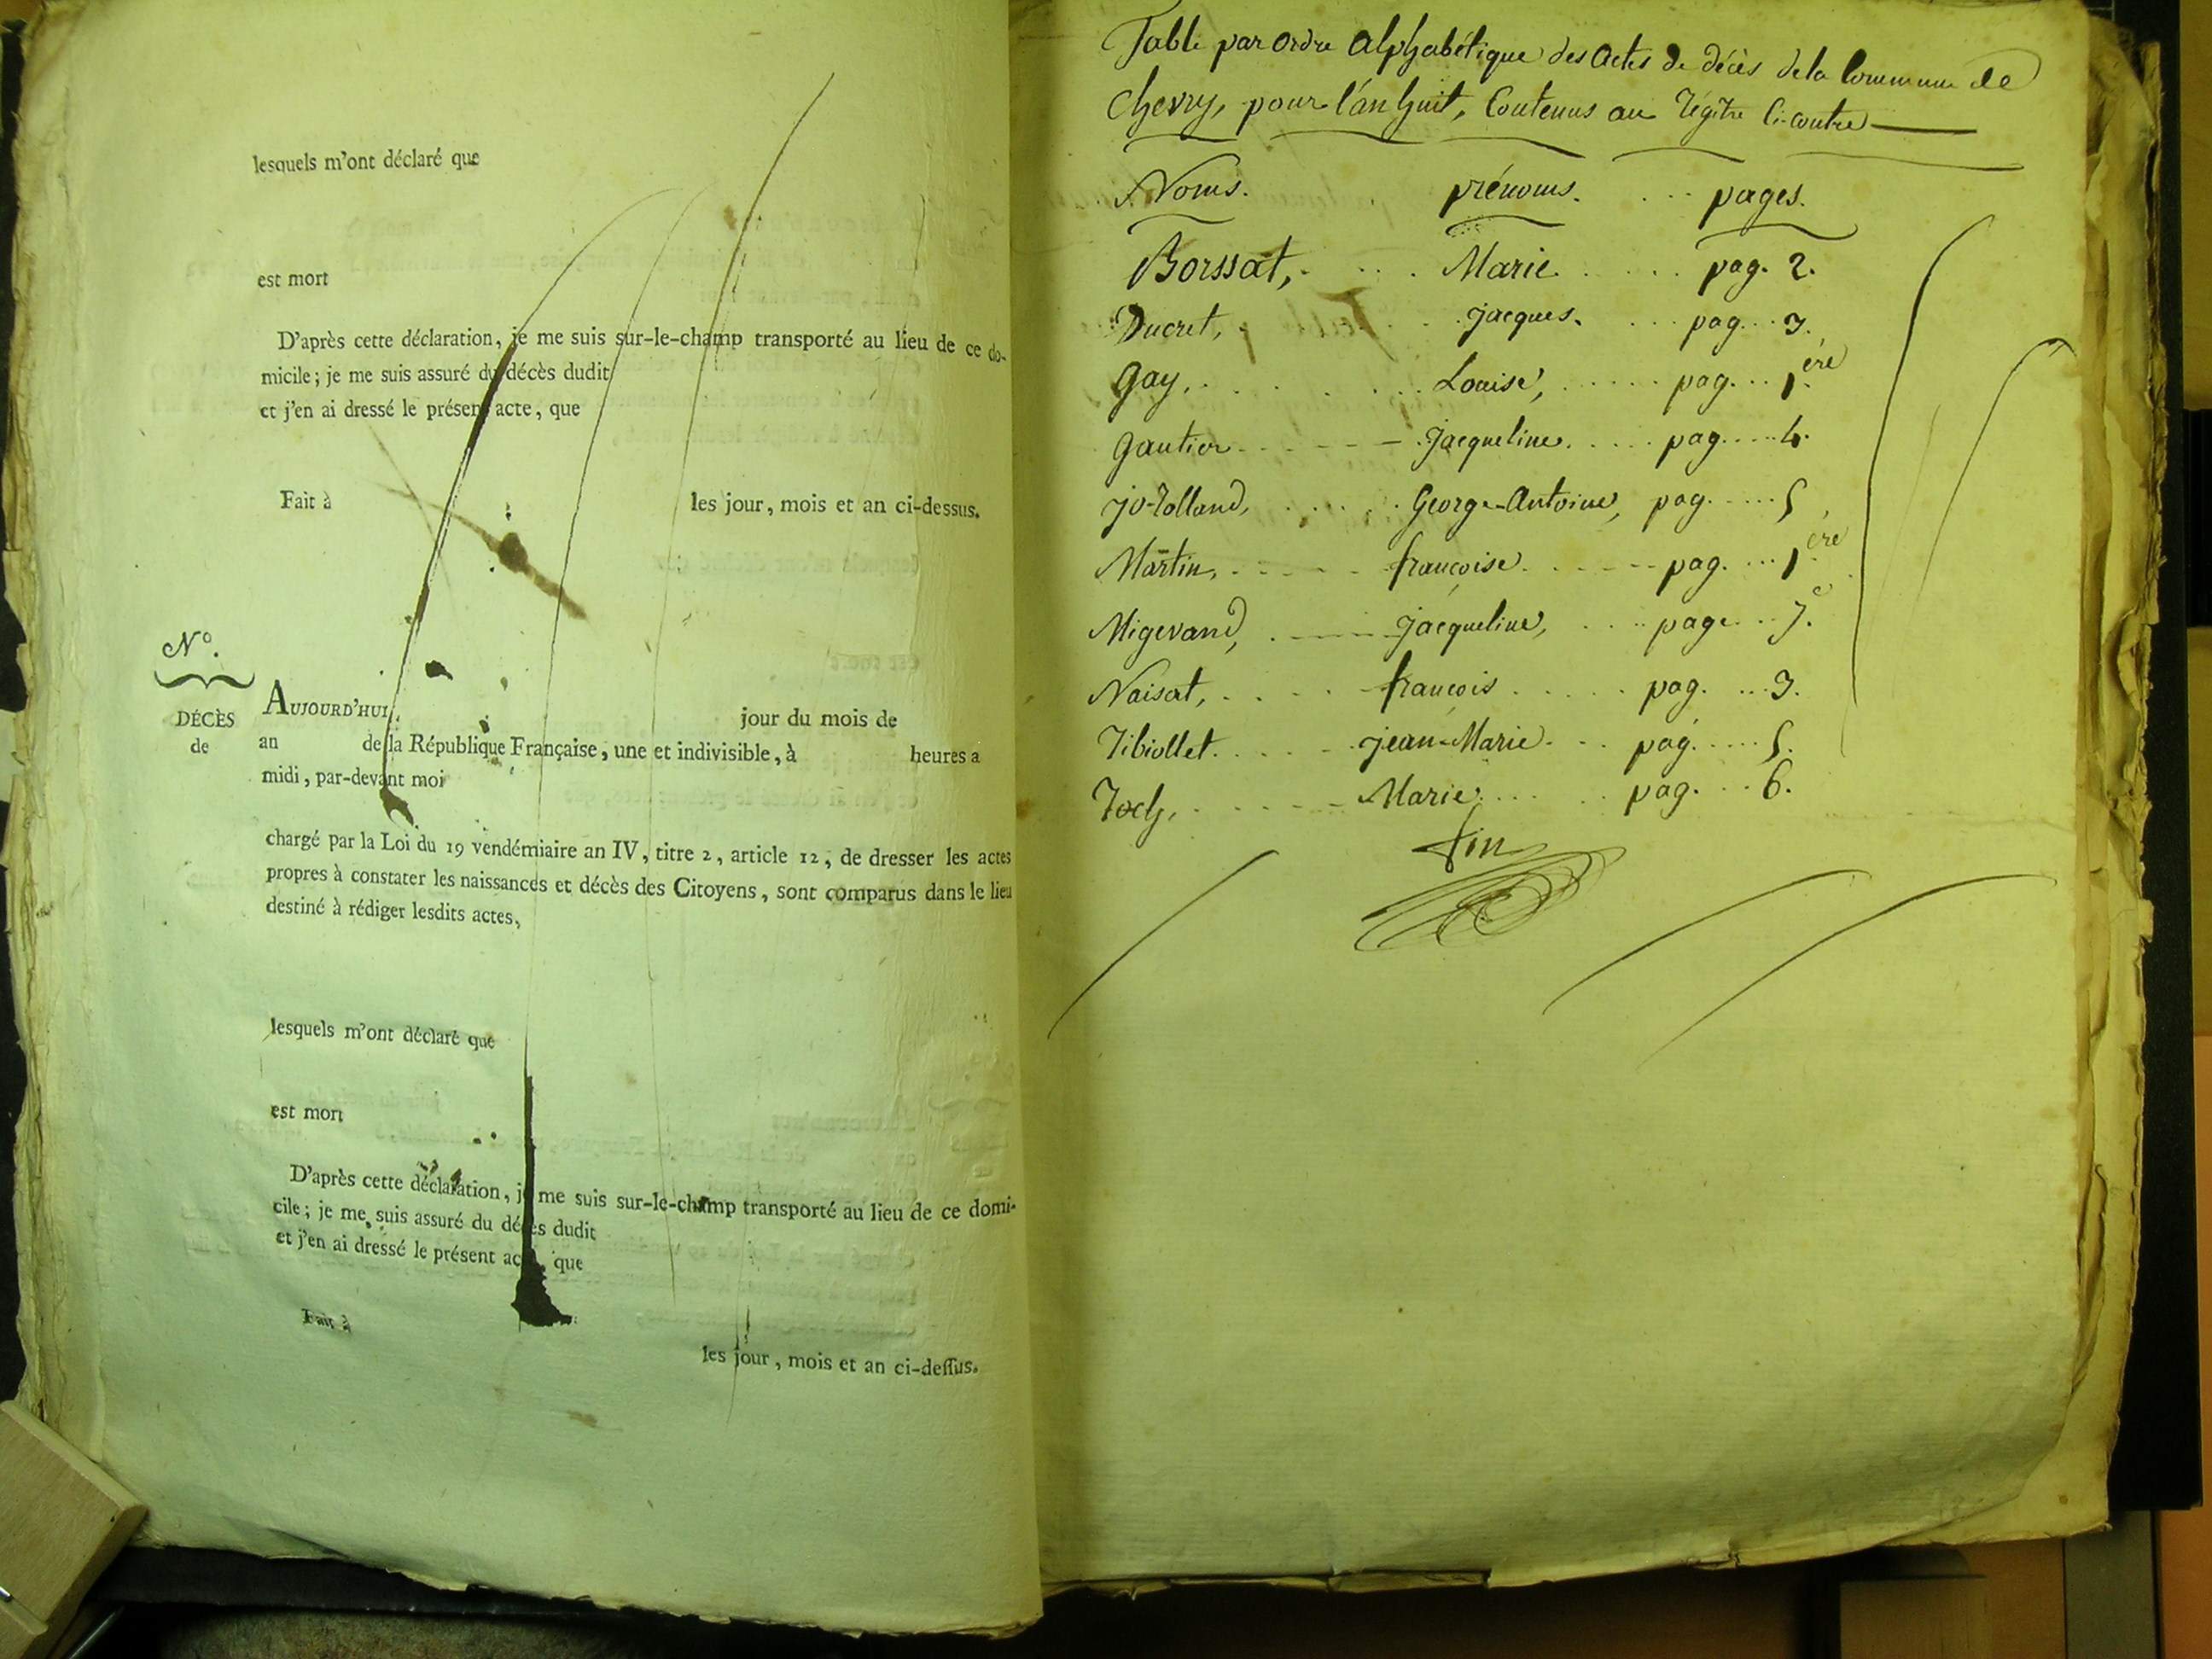 lesquels m'ont déclaré que
est mort
D'après cette déclaration, je me suis sur-le-champ transporté au lieu de ce do-
micile ; je me suis assuré du décès dudit
et j'en ai dressé le présent acte, que
Fait à les jour, mois et an ci-dessus.
N°.
DÉCÈS
de
AUJOURD'HUI, jour du mois de
an de la République Française, une et indivisible, à heures a
midi, par-devant moi
chargé par la Loi du 19 vendémiaire an IV, titre 2, article 12, de dresser les actes
propres à constater les naissances et décès des Citoyens, sont comparus dans le lieu
destiné à rédiger lesdits actes,
lesquels m'ont déclaré que
est mort
D'après cette déclaration, je me suis sur-le-champ transporté au lieu de ce domi-
cile ; je me suis assuré du décès dudit
et j'en ai dressé le présent acte, que
Fait à
les jour, mois et an ci-dessus.
Table par ordre alphabétique des actes de décès de la Commune de
Chevry, pour l'an huit, Contenus au régitre Ci-contre
Noms. prénoms. pages.
Borssat, Marie pag. 2.
Ducret, jacques. pag. 3.
Gay, Louise, pag. 1ère
Gautier jacqueline. pag. 4.
George-Antoine, pag. 5
Martin, françoise. pag. 1ère
Migevand, jacqueline, page 7e.
Naisat, françois pag. 3.
Tibiollet. jean-Marie pag. 5.
Marie pag. 6.
fin